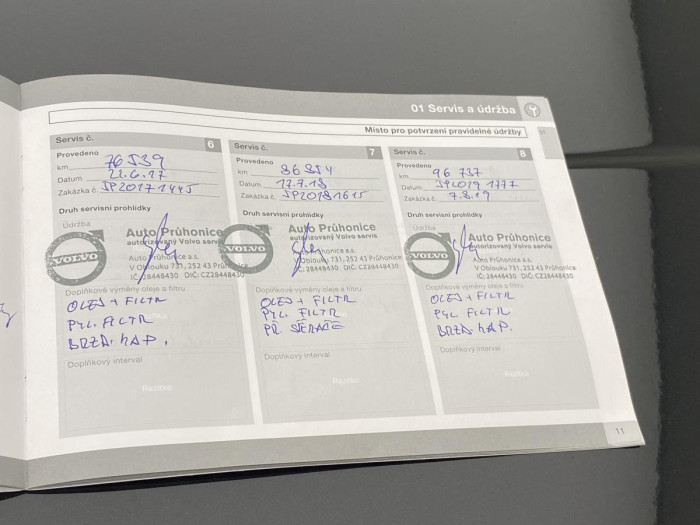 01 Servis a údržba
Místo pro potvrzení pravidelné údržby
Servis č. 6
Provedeno
km 76539
Datum 22.6.17
Zakázka č. JP20171445
Druh servisní prohlídky
Údržba
VOLVO
Auto Průhonice
autorizovaný Volvo servis
Auto Průhonice a.s.
V Oblouku 731, 252 43 Průhonice
IČ: 28448430 DIČ: CZ28448430
Doplňkové výměny oleje a filtru
OLEJ + FILTR
PYL. FILTR
BRZD. KAP.
Doplňkový interval
Razítko
Servis č. 7
Provedeno
km 86854
Datum 17.7.18
Zakázka č. JP20181615
Druh servisní prohlídky
VOLVO
Auto Průhonice
autorizovaný Volvo servis
Průhonice a.s.
V Oblouku 731, 252 43 Průhonice
IČ: 28448430 DIČ: CZ28448430
Doplňkové výměny oleje a filtru
OLEJ + FILTR
PYL. FILTR
PŘ. STĚRAČE
Doplňkový interval
Razítko
Servis č. 8
Provedeno
km 96 737
Datum JP2019 1777
Zakázka č. 7.8.19
Druh servisní prohlídky
Údržba
VOLVO
Auto Průhonice
autorizovaný Volvo servis
Auto Průhonice a.s.
V Oblouku 731, 252 43 Průhonice
IČ: 28448430 DIČ: CZ28448430
Doplňkové výměny oleje a filtru
OLEJ + FILTR
PYL. FILTR
BRZD. KAP.
Doplňkový interval
Razítko
11